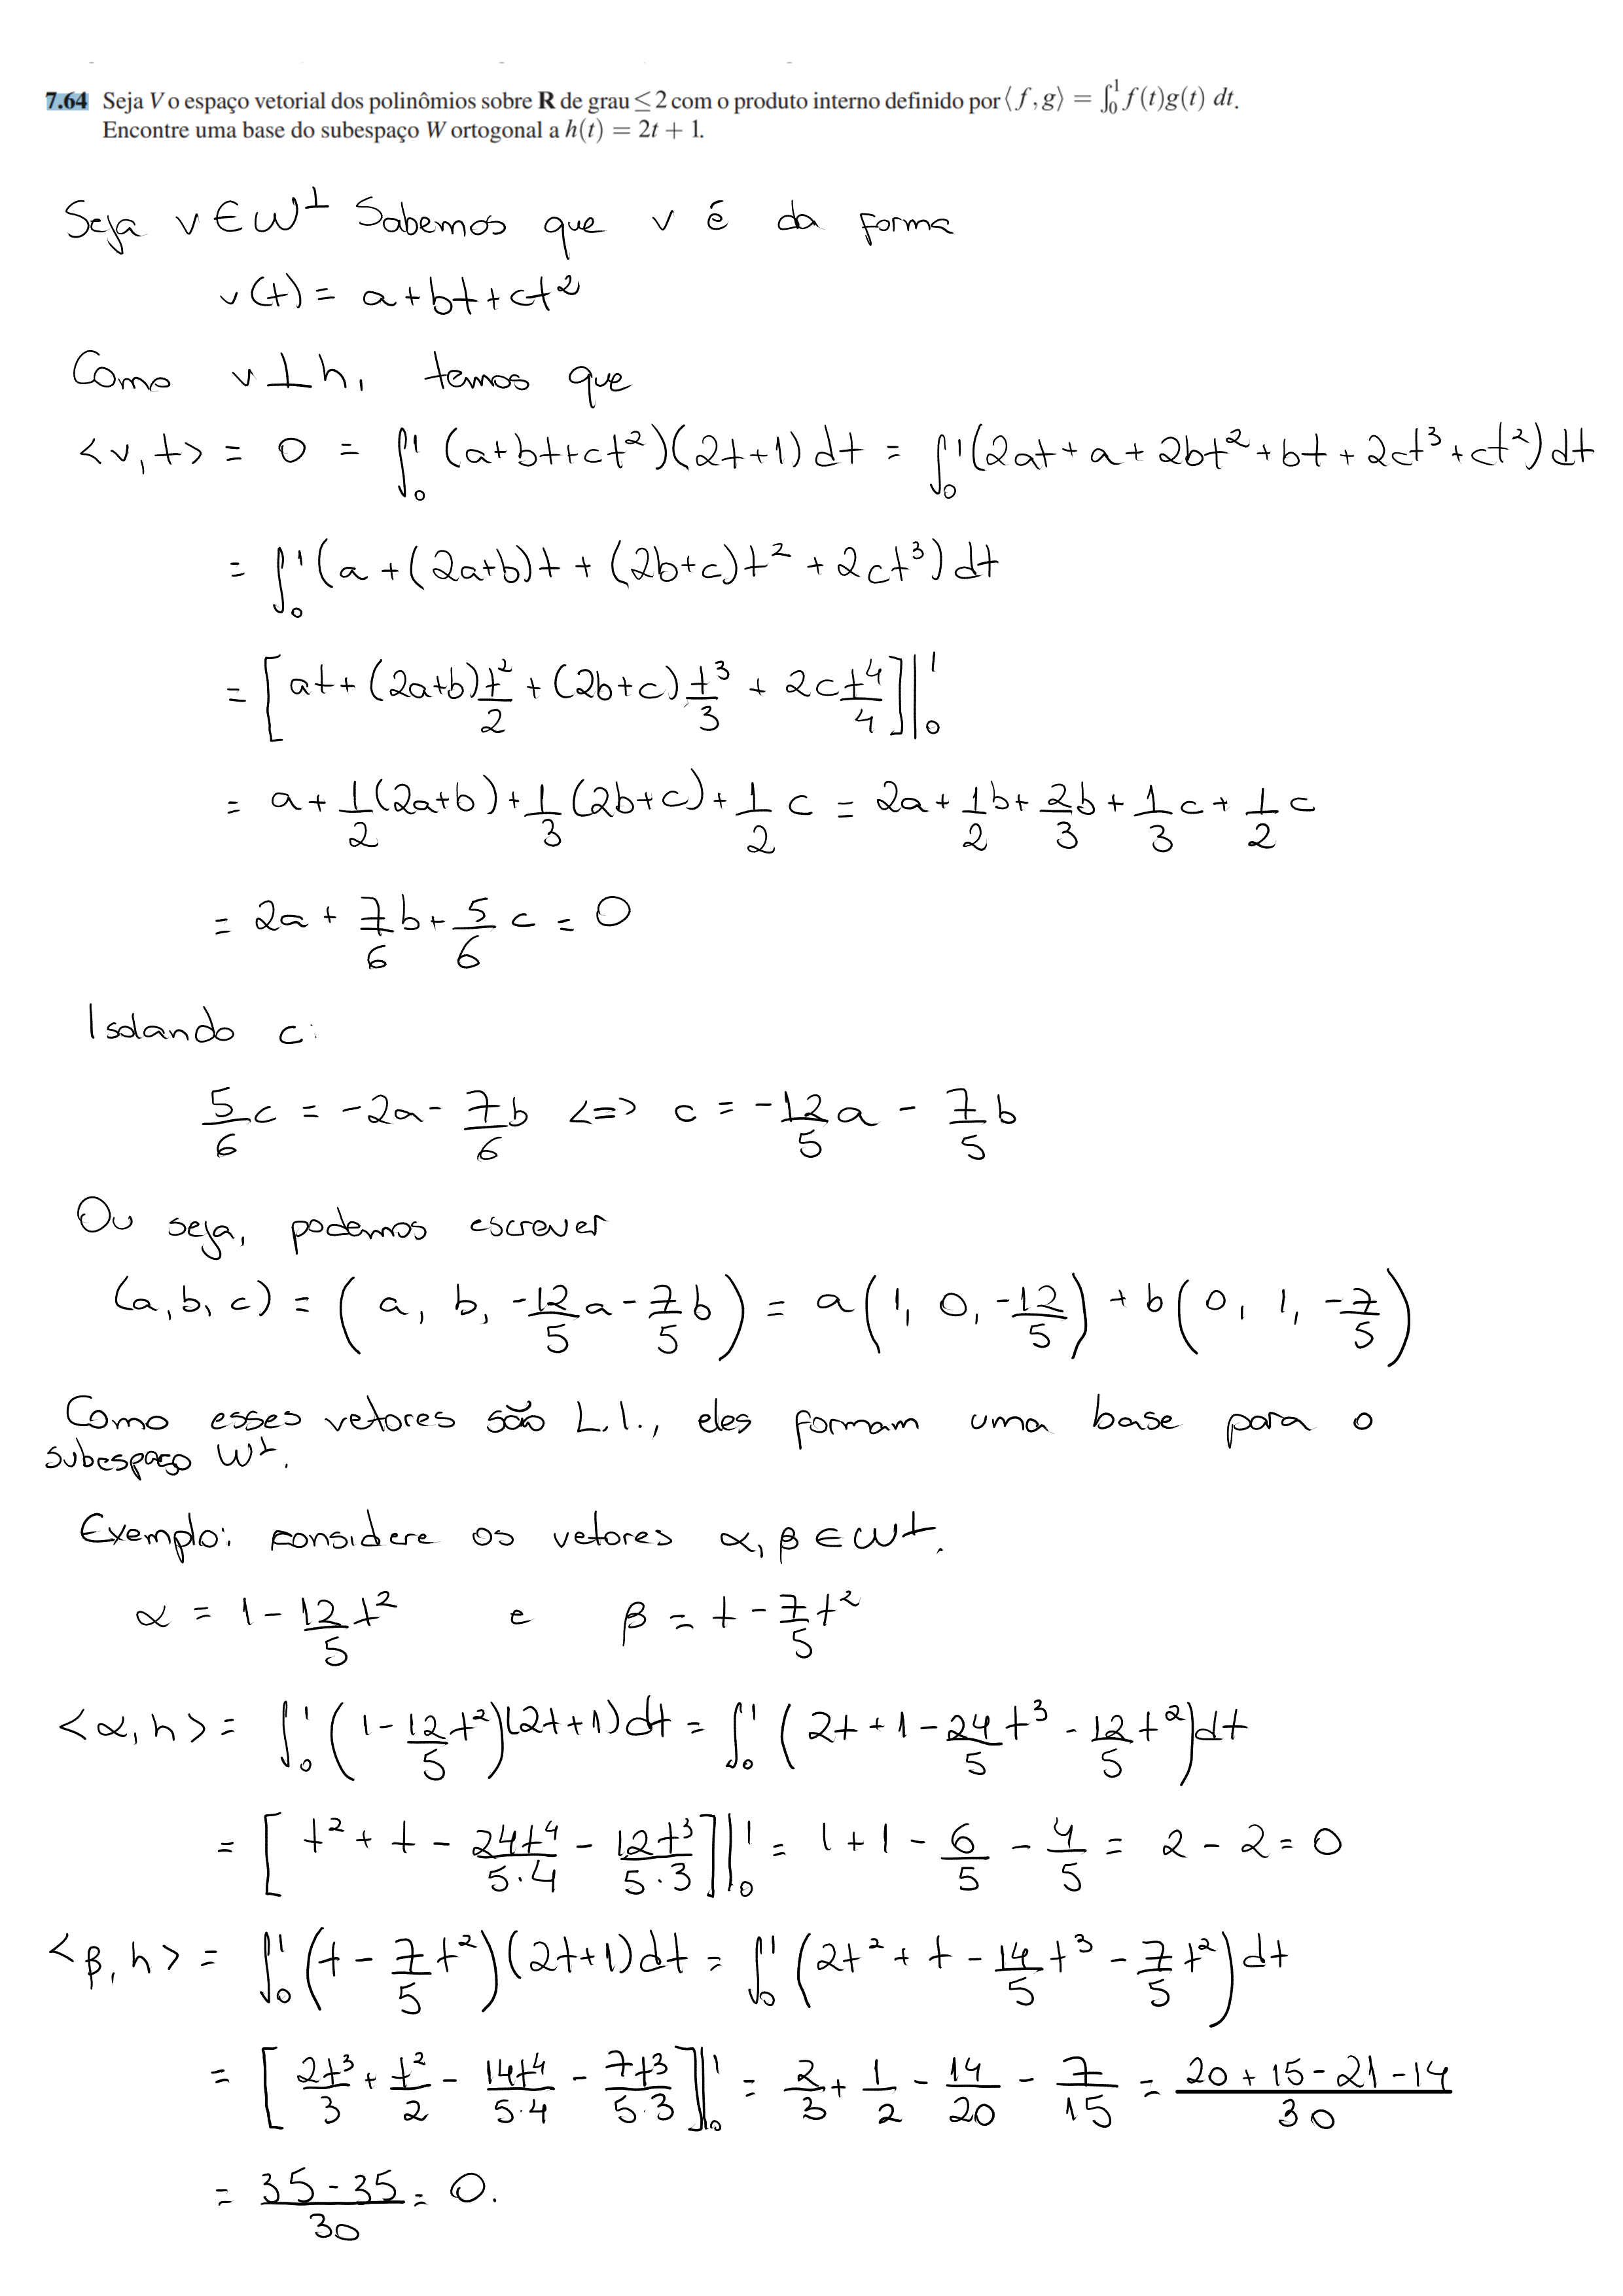 7.64 Seja V o espaço vetorial dos polinômios sobre R de grau ≤ 2 com o produto interno definido por ⟨f, g⟩ = ∫₀¹ f(t)g(t) dt.
Encontre uma base do subespaço W ortogonal a h(t) = 2t + 1.
Seja v ∈ W^⊥ Sabemos que v é da forma
v(t) = a+bt+ct²
Como v ⊥ h, temos que
<v,t> = 0 = ∫₀¹ (a+bt+ct²)(2t+1) dt = ∫₀¹ (2at + a + 2bt² + bt + 2ct³ + ct²) dt
= ∫₀¹ (a + (2a+b)t + (2b+c)t² + 2ct³) dt
= [at + (2a+b)t²/2 + (2b+c)t³/3 + 2ct⁴/4]|₀¹
= a + 1/2(2a+b) + 1/3(2b+c) + 1/2 c = 2a + 1/2 b + 2/3 b + 1/3 c + 1/2 c
= 2a + 7/6 b + 5/6 c = 0
Isolando c:
5/6 c = -2a - 7/6 b <=> c = -12/5 a - 7/5 b
Ou seja, podemos escrever
(a, b, c) = (a, b, -12/5 a - 7/5 b) = a(1, 0, -12/5) + b(0, 1, -7/5)
Como esses vetores são L.I., eles formam uma base para o
subespaço W^⊥.
Exemplo: considere os vetores α, β ∈ W^⊥.
α = 1 - 12/5 t² e β = t - 7/5 t²
<α, h> = ∫₀¹ (1 - 12/5 t²)(2t+1) dt = ∫₀¹ (2t + 1 - 24/5 t³ - 12/5 t²) dt
= [t² + t - 24t⁴/5·4 - 12t³/5·3]|₀¹ = 1 + 1 - 6/5 - 4/5 = 2 - 2 = 0
<β, h> = ∫₀¹ (t - 7/5 t²)(2t+1) dt = ∫₀¹ (2t² + t - 14/5 t³ - 7/5 t²) dt
= [2t³/3 + t²/2 - 14t⁴/5·4 - 7t³/5·3]|₀¹ = 2/3 + 1/2 - 14/20 - 7/15 = 20 + 15 - 21 - 14/30
= 35 - 35/30 = 0.